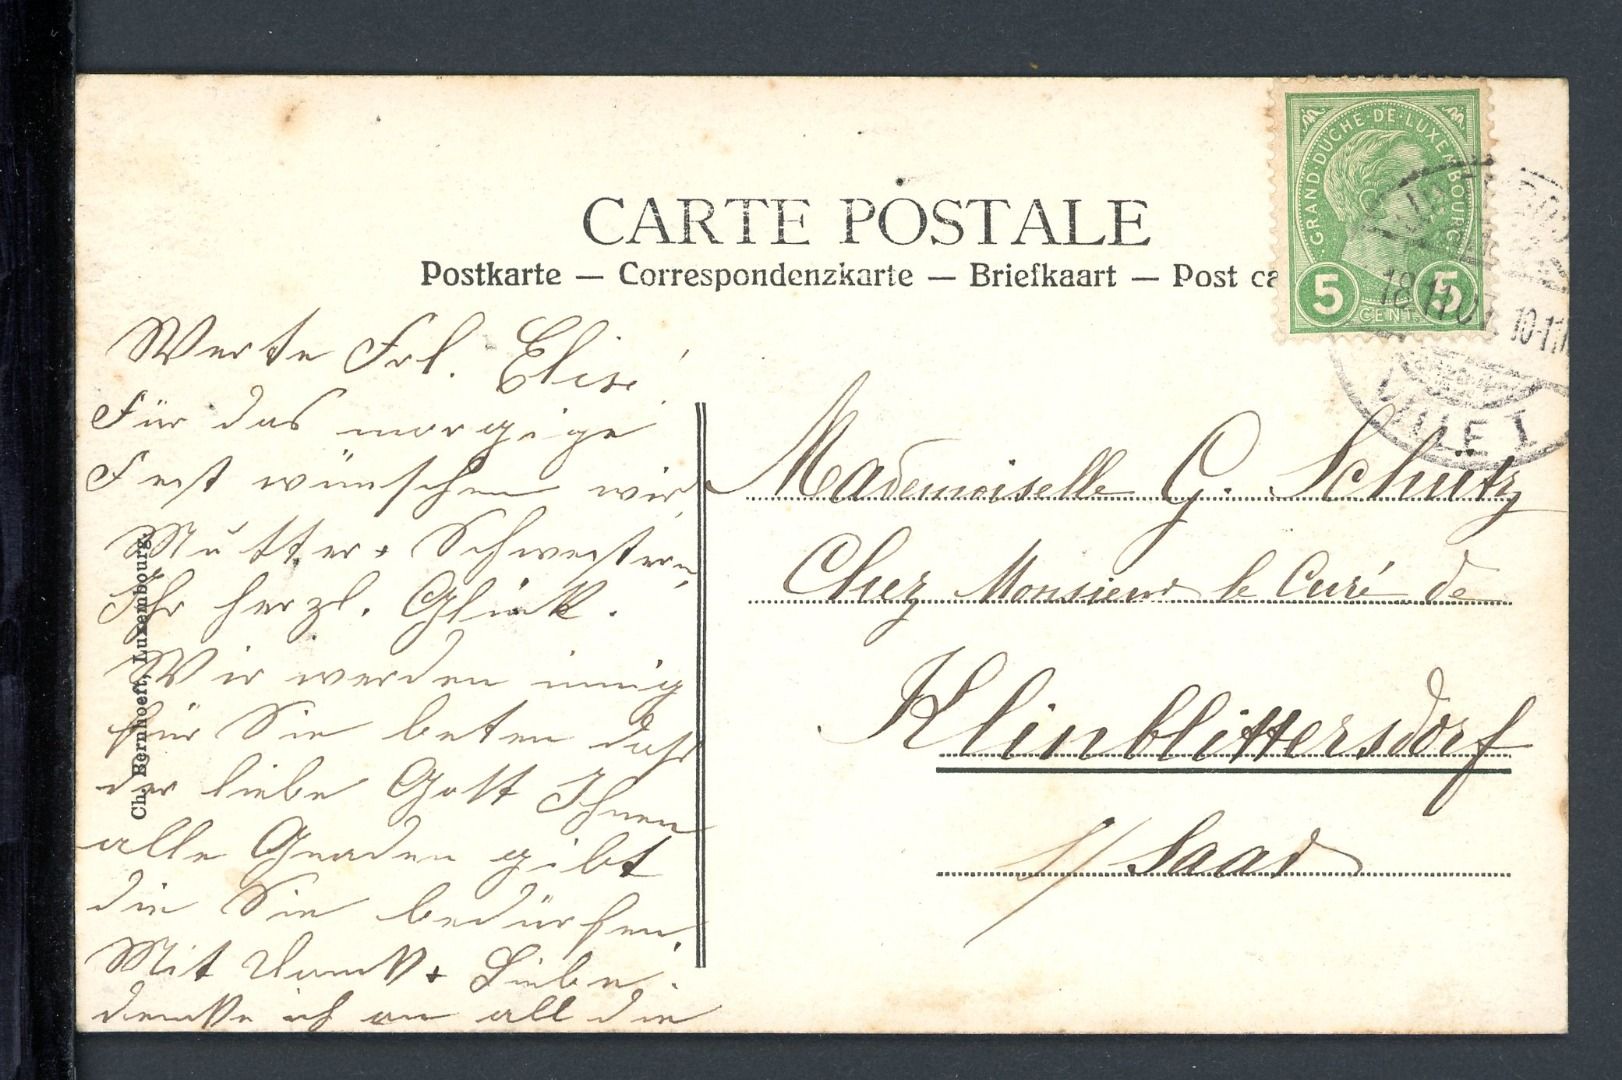 CARTE POSTALE
Postkarte — Correspondenzkarte — Briefkaart — Post ca
GRAND-DUCHÉ-DE-LUXEMBOURG
5 CENT. 5
18 11 07 10-11
VILLE 1
Werte Frl. Elise!
Für das morgige
Fest wünschen wir,
Mutter + Schwestern,
Ihr herzl. Glück.
Wir werden innig
für Sie beten daß
der liebe Gott Ihnen
alle Gnaden gibt
die Sie bedürfen.
Mit Dank + Liebe
denke ich an all die
Ch. Bernhoeft, Luxembourg.
Mademoiselle G. Schütz
Chez Monsieur le Curé de
Klinblittersdorf
s/ Saar